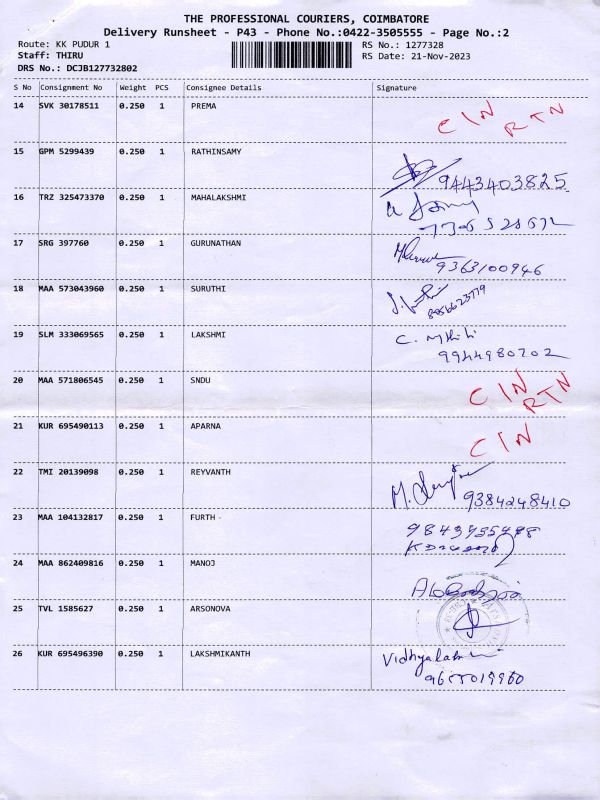 THE PROFESSIONAL COURIERS, COIMBATORE
Delivery Runsheet - P43 - Phone No.:0422-3505555 - Page No.:2
Route: KK PUDUR 1
RS No.: 1277328
Staff: THIRU
RS Date: 21-Nov-2023
DRS No.: DCJB127732802
S No Consignment No Weight PCS Consignee Details Signature
14 SVK 30178511 0.250 1 PREMA CIN RTN
15 GPM 5299439 0.250 1 RATHINSAMY
9443403825
16 TRZ 325473370 0.250 1 MAHALAKSHMI
17 SRG 397760 0.250 1 GURUNATHAN
9363100946
18 MAA 573043960 0.250 1 SURUTHI
19 SLM 333069565 0.250 1 LAKSHMI
9944980702
20 MAA 571806545 0.250 1 SNDU CIN RTN
21 KUR 695490113 0.250 1 APARNA CIN
22 TMI 20139098 0.250 1 REYVANTH
9384248410
23 MAA 104132817 0.250 1 FURTH -
24 MAA 862409816 0.250 1 MANOJ
25 TVL 1585627 0.250 1 ARSONOVA
26 KUR 695496390 0.250 1 LAKSHMIKANTH